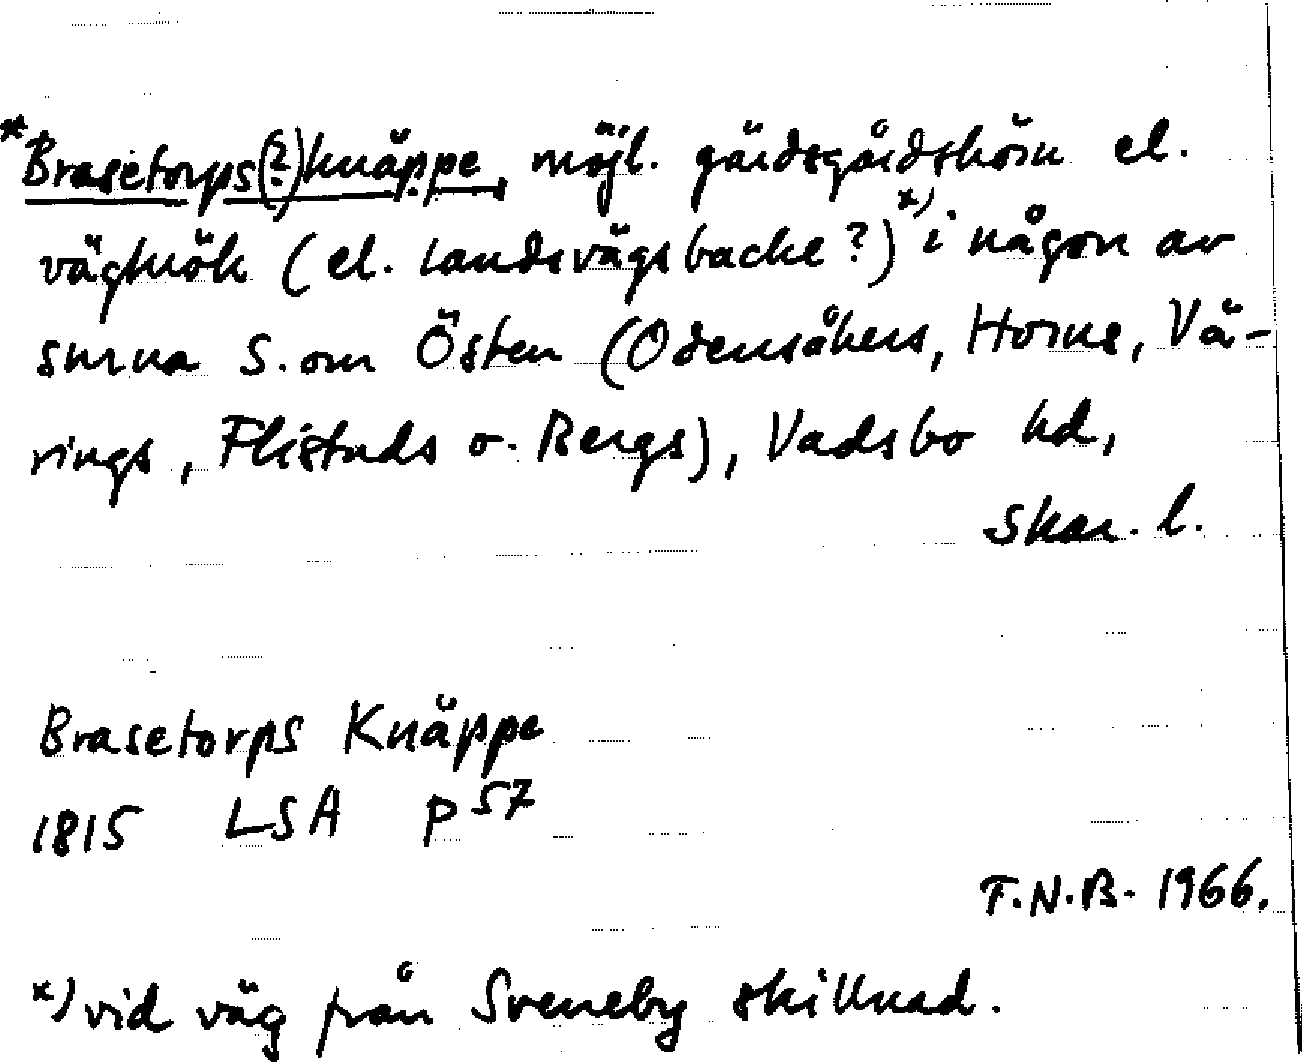 *Brasetorps(?)knäppe, möjl. gärdsgårdshörn el.
vägkrök (el. landsvägsbacke?) x) i någon av
snrna S. om Östen (Odensåkers, Horns, Vä-
rings, Flistads o. Bergs), Vadsbo hd,
Skar. l.
Brasetorps Knäppe
1815 LSA P 57
F.N.B. 1966.
x) vid väg från Sveneby skillnad.